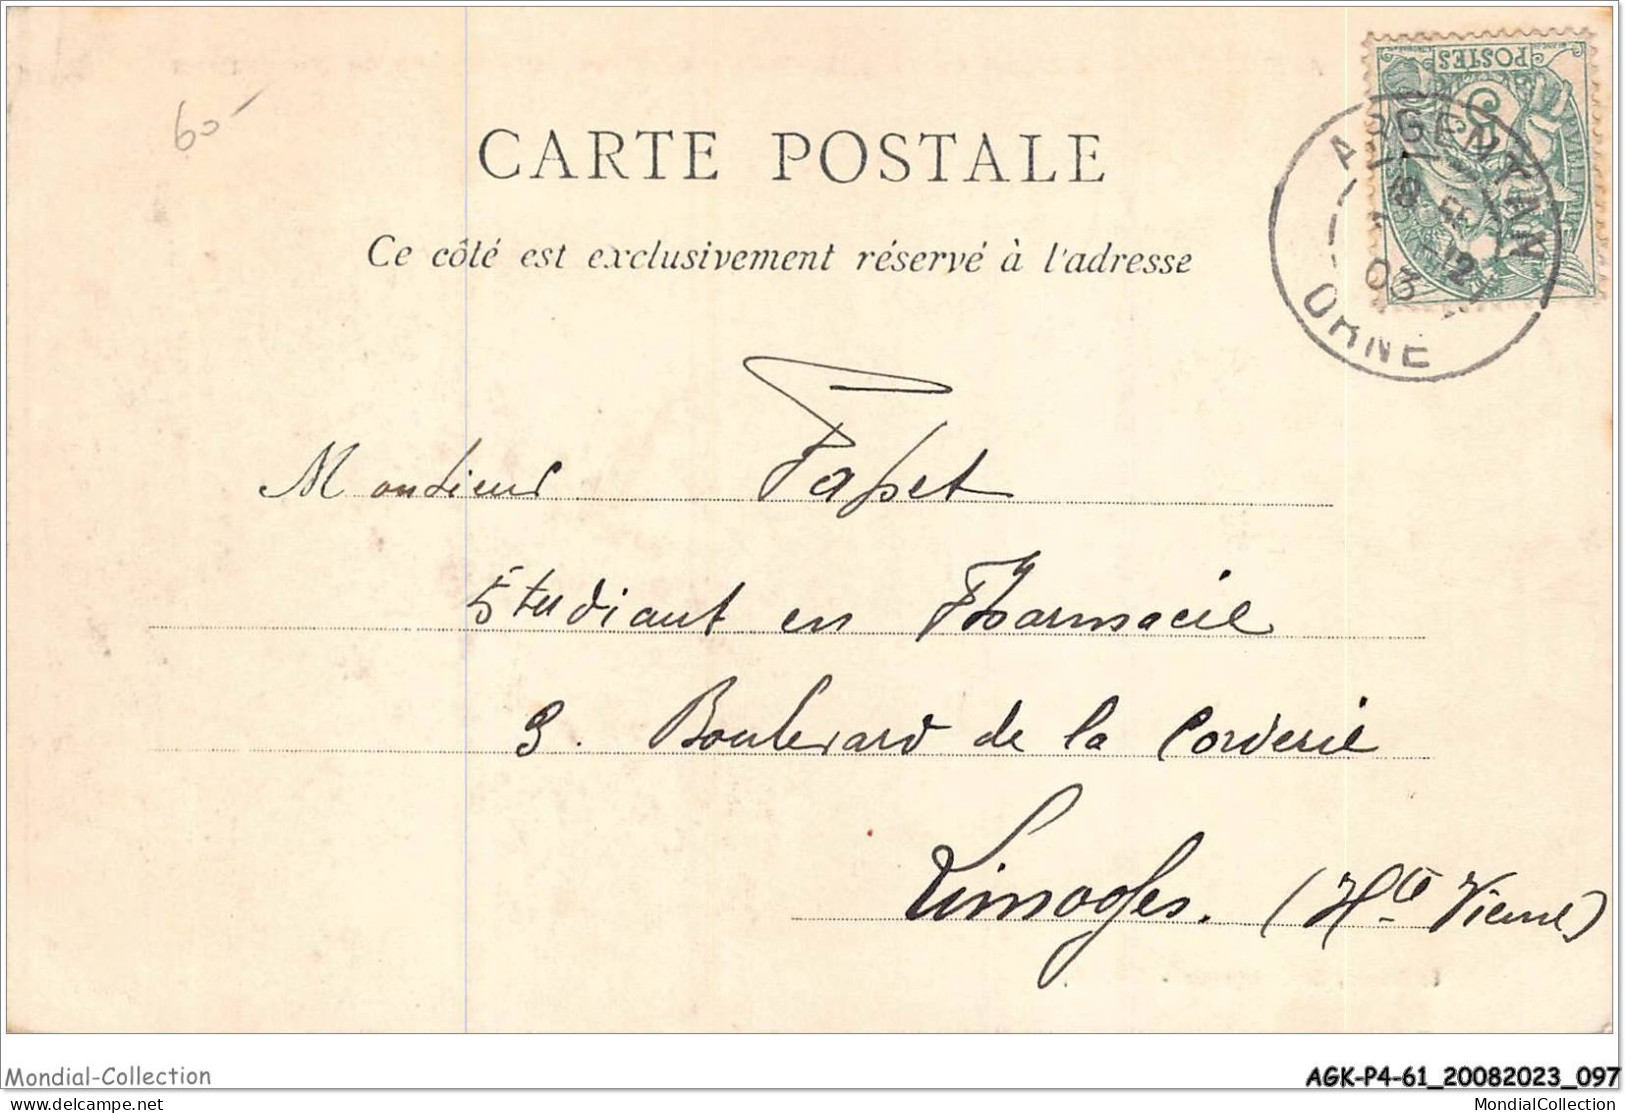 60-
POSTES
CARTE POSTALE
ARGENTAN
18
12
03
ORNE
Ce côté est exclusivement réservé à l'adresse
Monsieur Papet
Étudiant en Pharmacie
9. Boulevard de la Corderie
Limoges. (Hte Vienne)
Mondial-Collection
AGK-P4-61_20082023_097
delcampe.net
MondialCollection